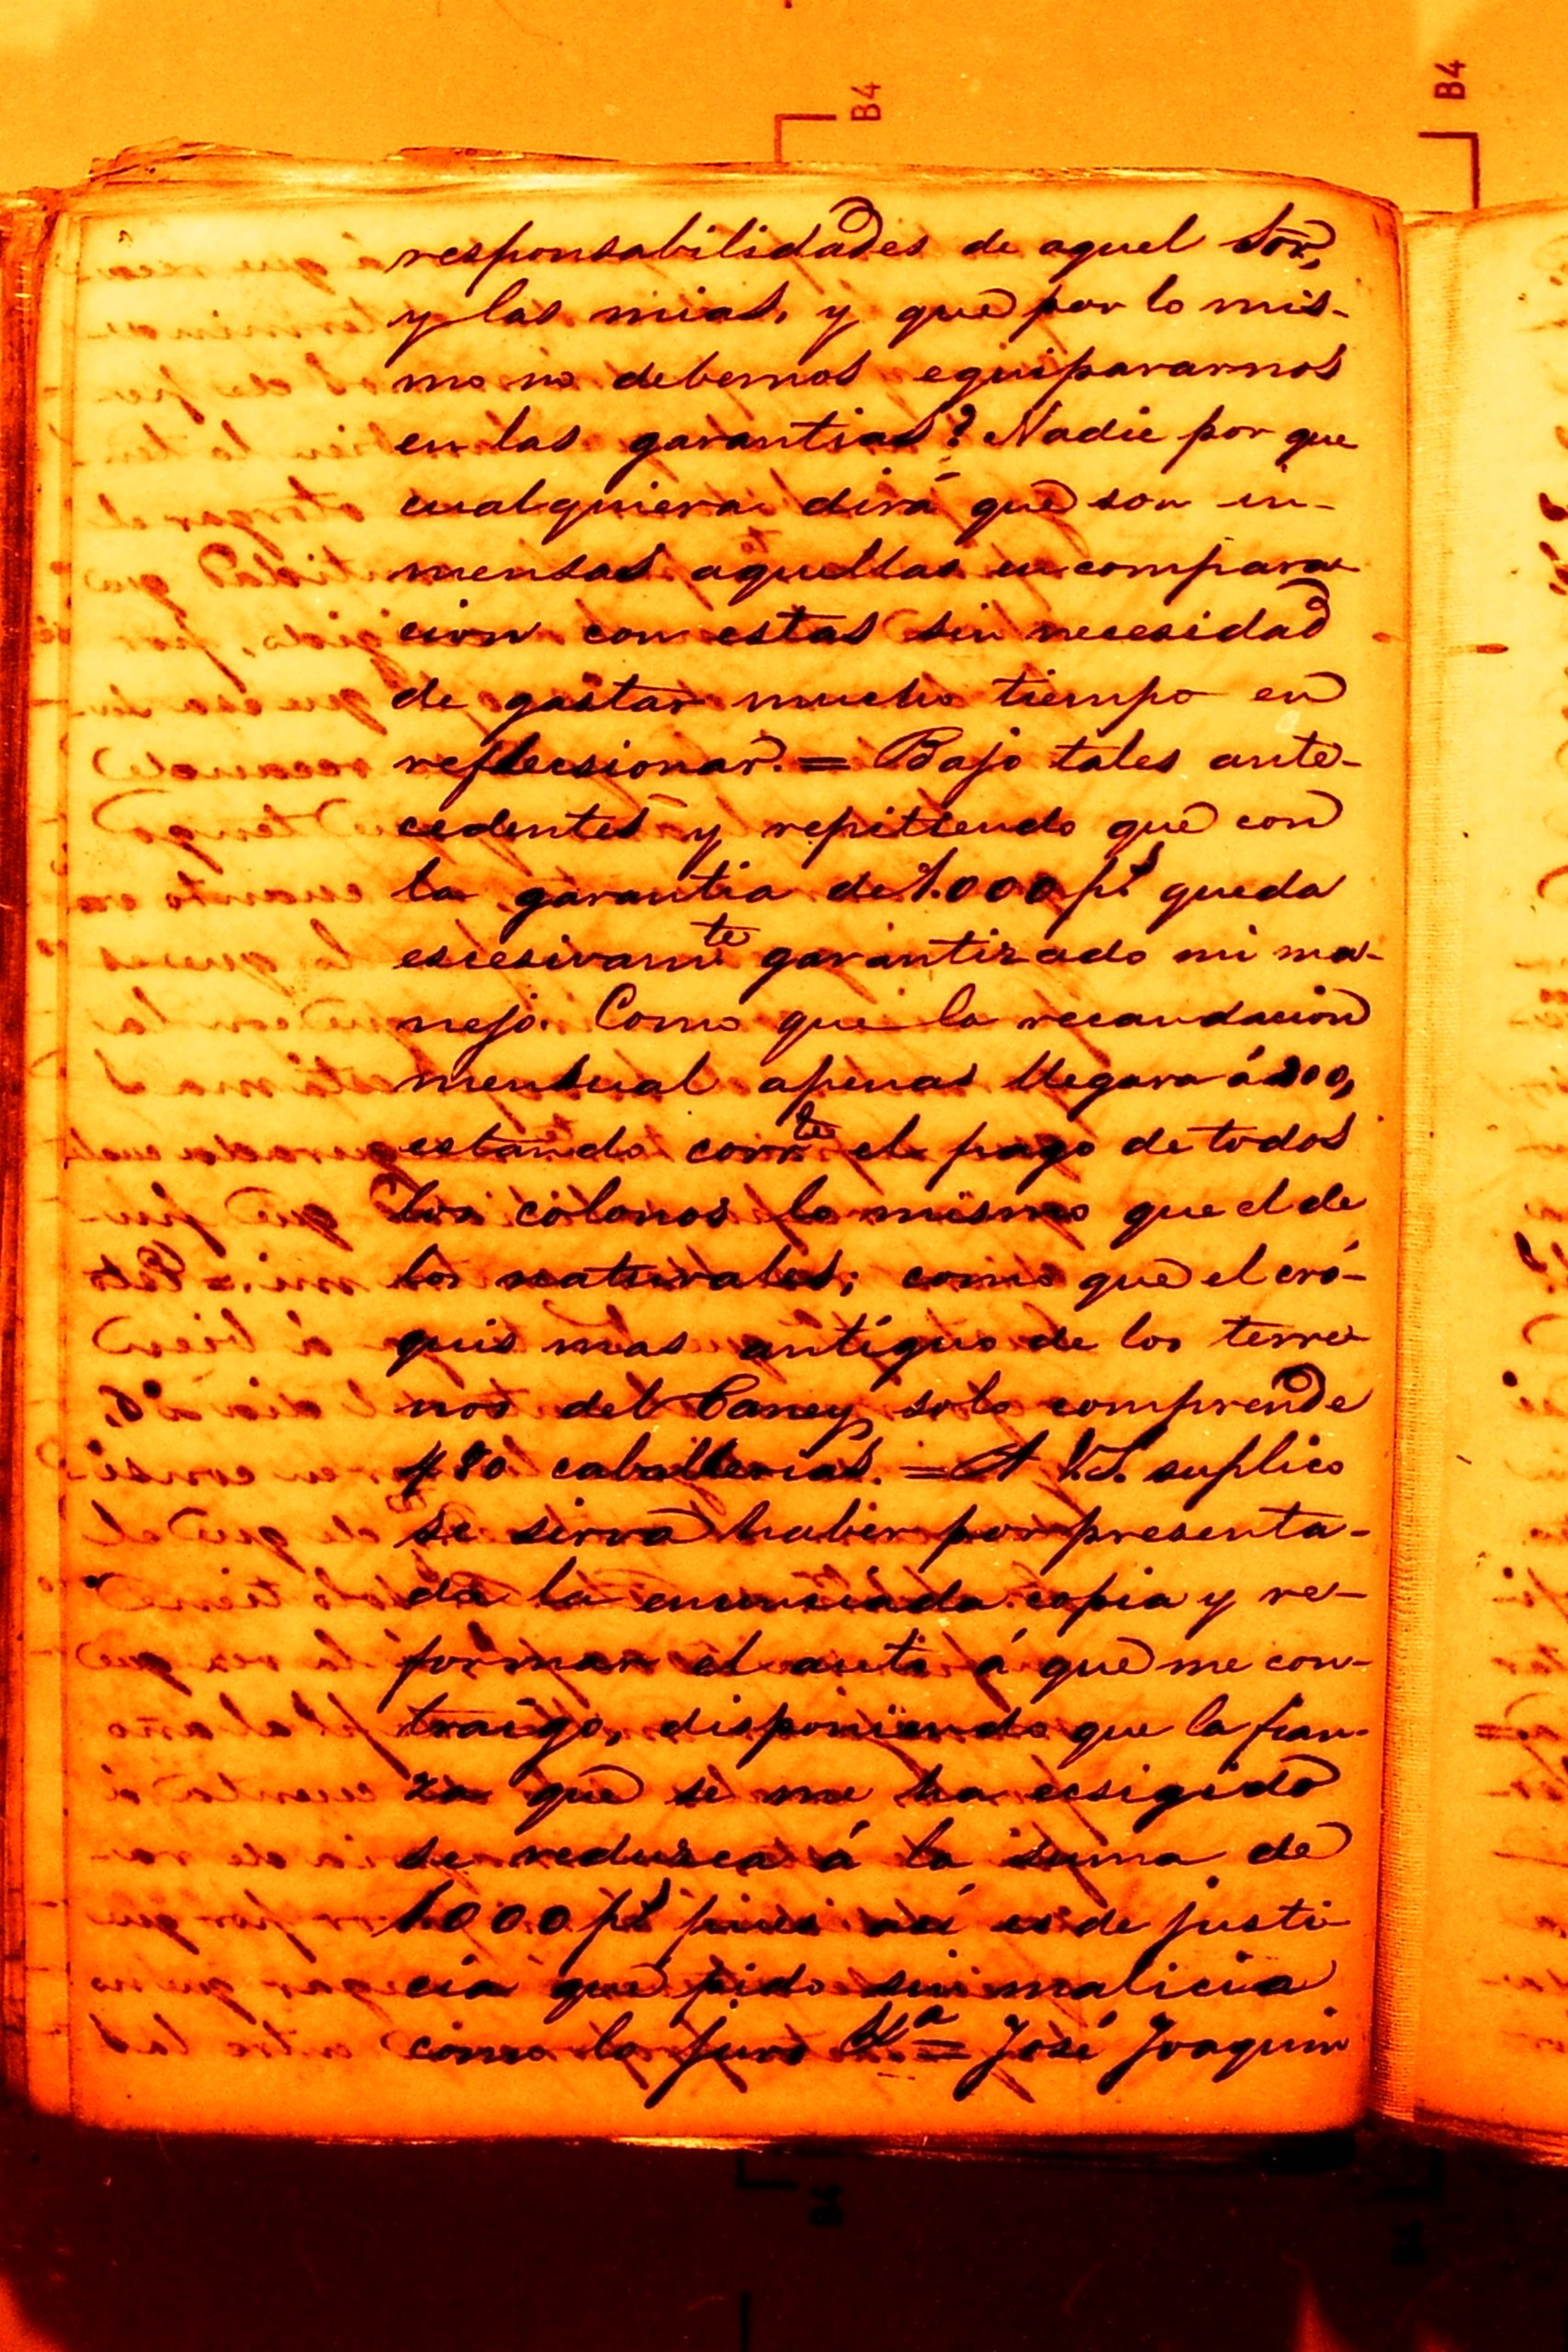 B4
B4
responsabilidades de aquel Sor,
y las mias, y que por lo mis-
mo no debemos equipararnos
en las garantias? Nadie por que
cualquiera dirá que son in-
mensas aquellas en compara
cion con estas sin necesidad
de gastar mucho tiempo en
reflecsionar. = Bajo tales ante-
cedentes y repitiendo que con
la garantia de 1.000 ps queda
escesivamte garantizado mi ma-
nejo. Como que la recaudacion
mensual apenas llegara á 200,
estando corrte el pago de todos
los colonos lo mismo que el de
los naturales; como que el cró-
quis mas antiguo de los terre
nos del Caney solo comprende
480 caballerias. = A V.S. suplico
se sirva haber por presenta-
da la enunciada copia y re-
formar el auto á que me con-
traigo, disponiendo que la fian-
za que se me ha ecsigido
se reduzca á la suma de
1.000 ps pues asi es de justi
cia que pido sin malicia
como lo juro &.a = José Joaquin
B4